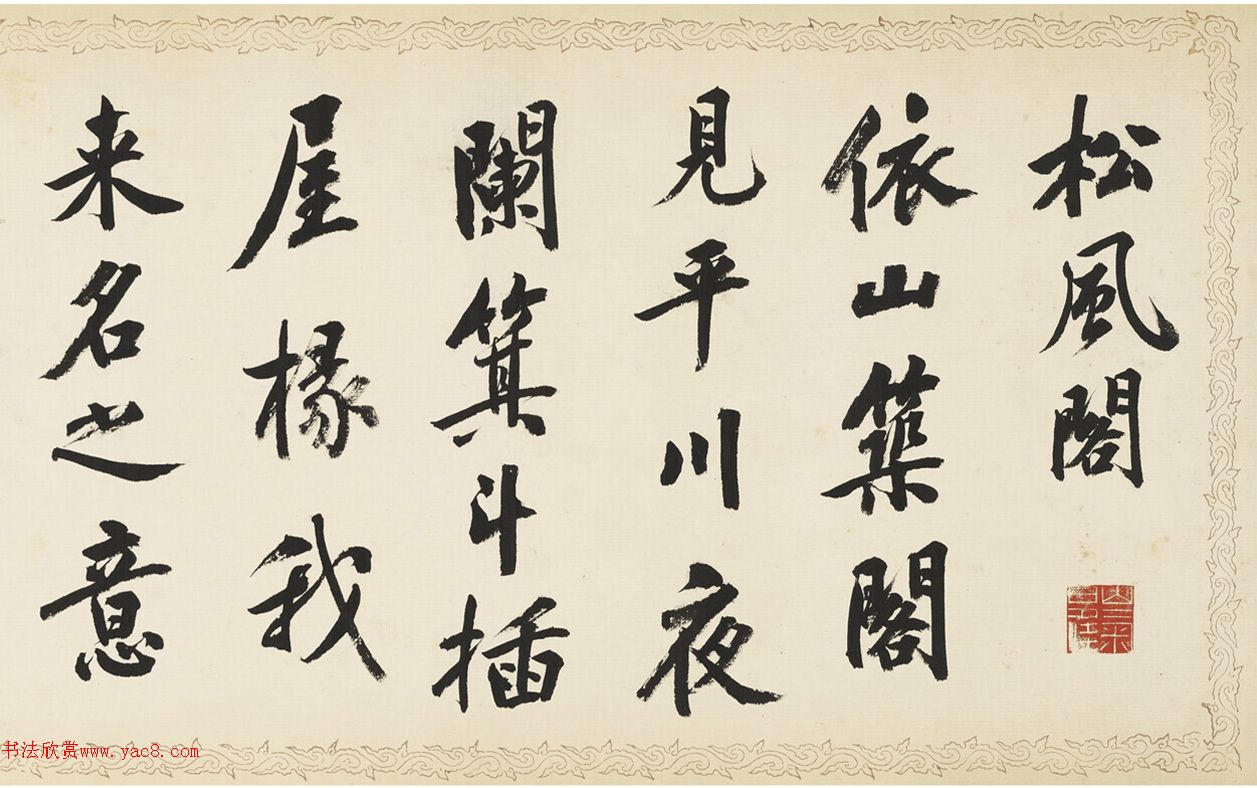 松風閣
依山築閣
見平川夜
闌箕斗插
屋椽我
来名之意
书法欣赏www.yac8.com